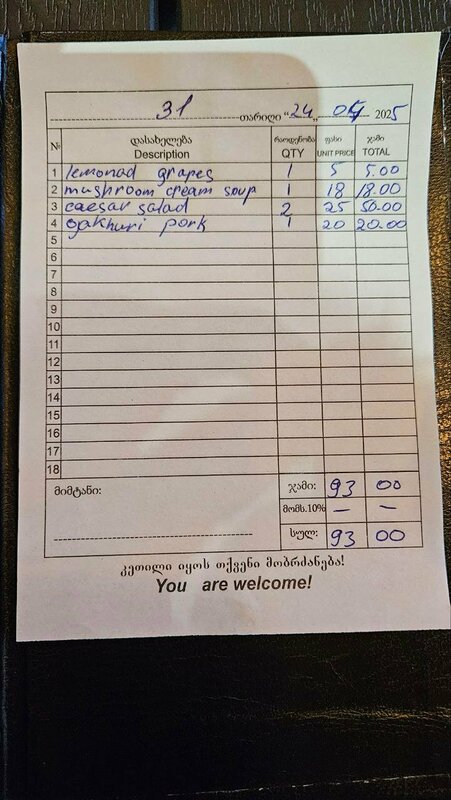 31 თარიღი "24" 04 2025
№ დასახელება რაოდენობა ფასი ჯამი
Description QTY UNIT PRICE TOTAL
1 lemonad grapes 1 5 5.00
2 mushroom cream soup 1 18 18.00
3 caesar salad 2 25 50.00
4 ojakhuri pork 1 20 20.00
5
6
7
8
9
10
11
12
13
14
15
16
17
18
მიმტანი: ჯამი: 93 00
მომს.10% — —
სულ: 93 00
კეთილი იყოს თქვენი მობრძანება!
You are welcome!